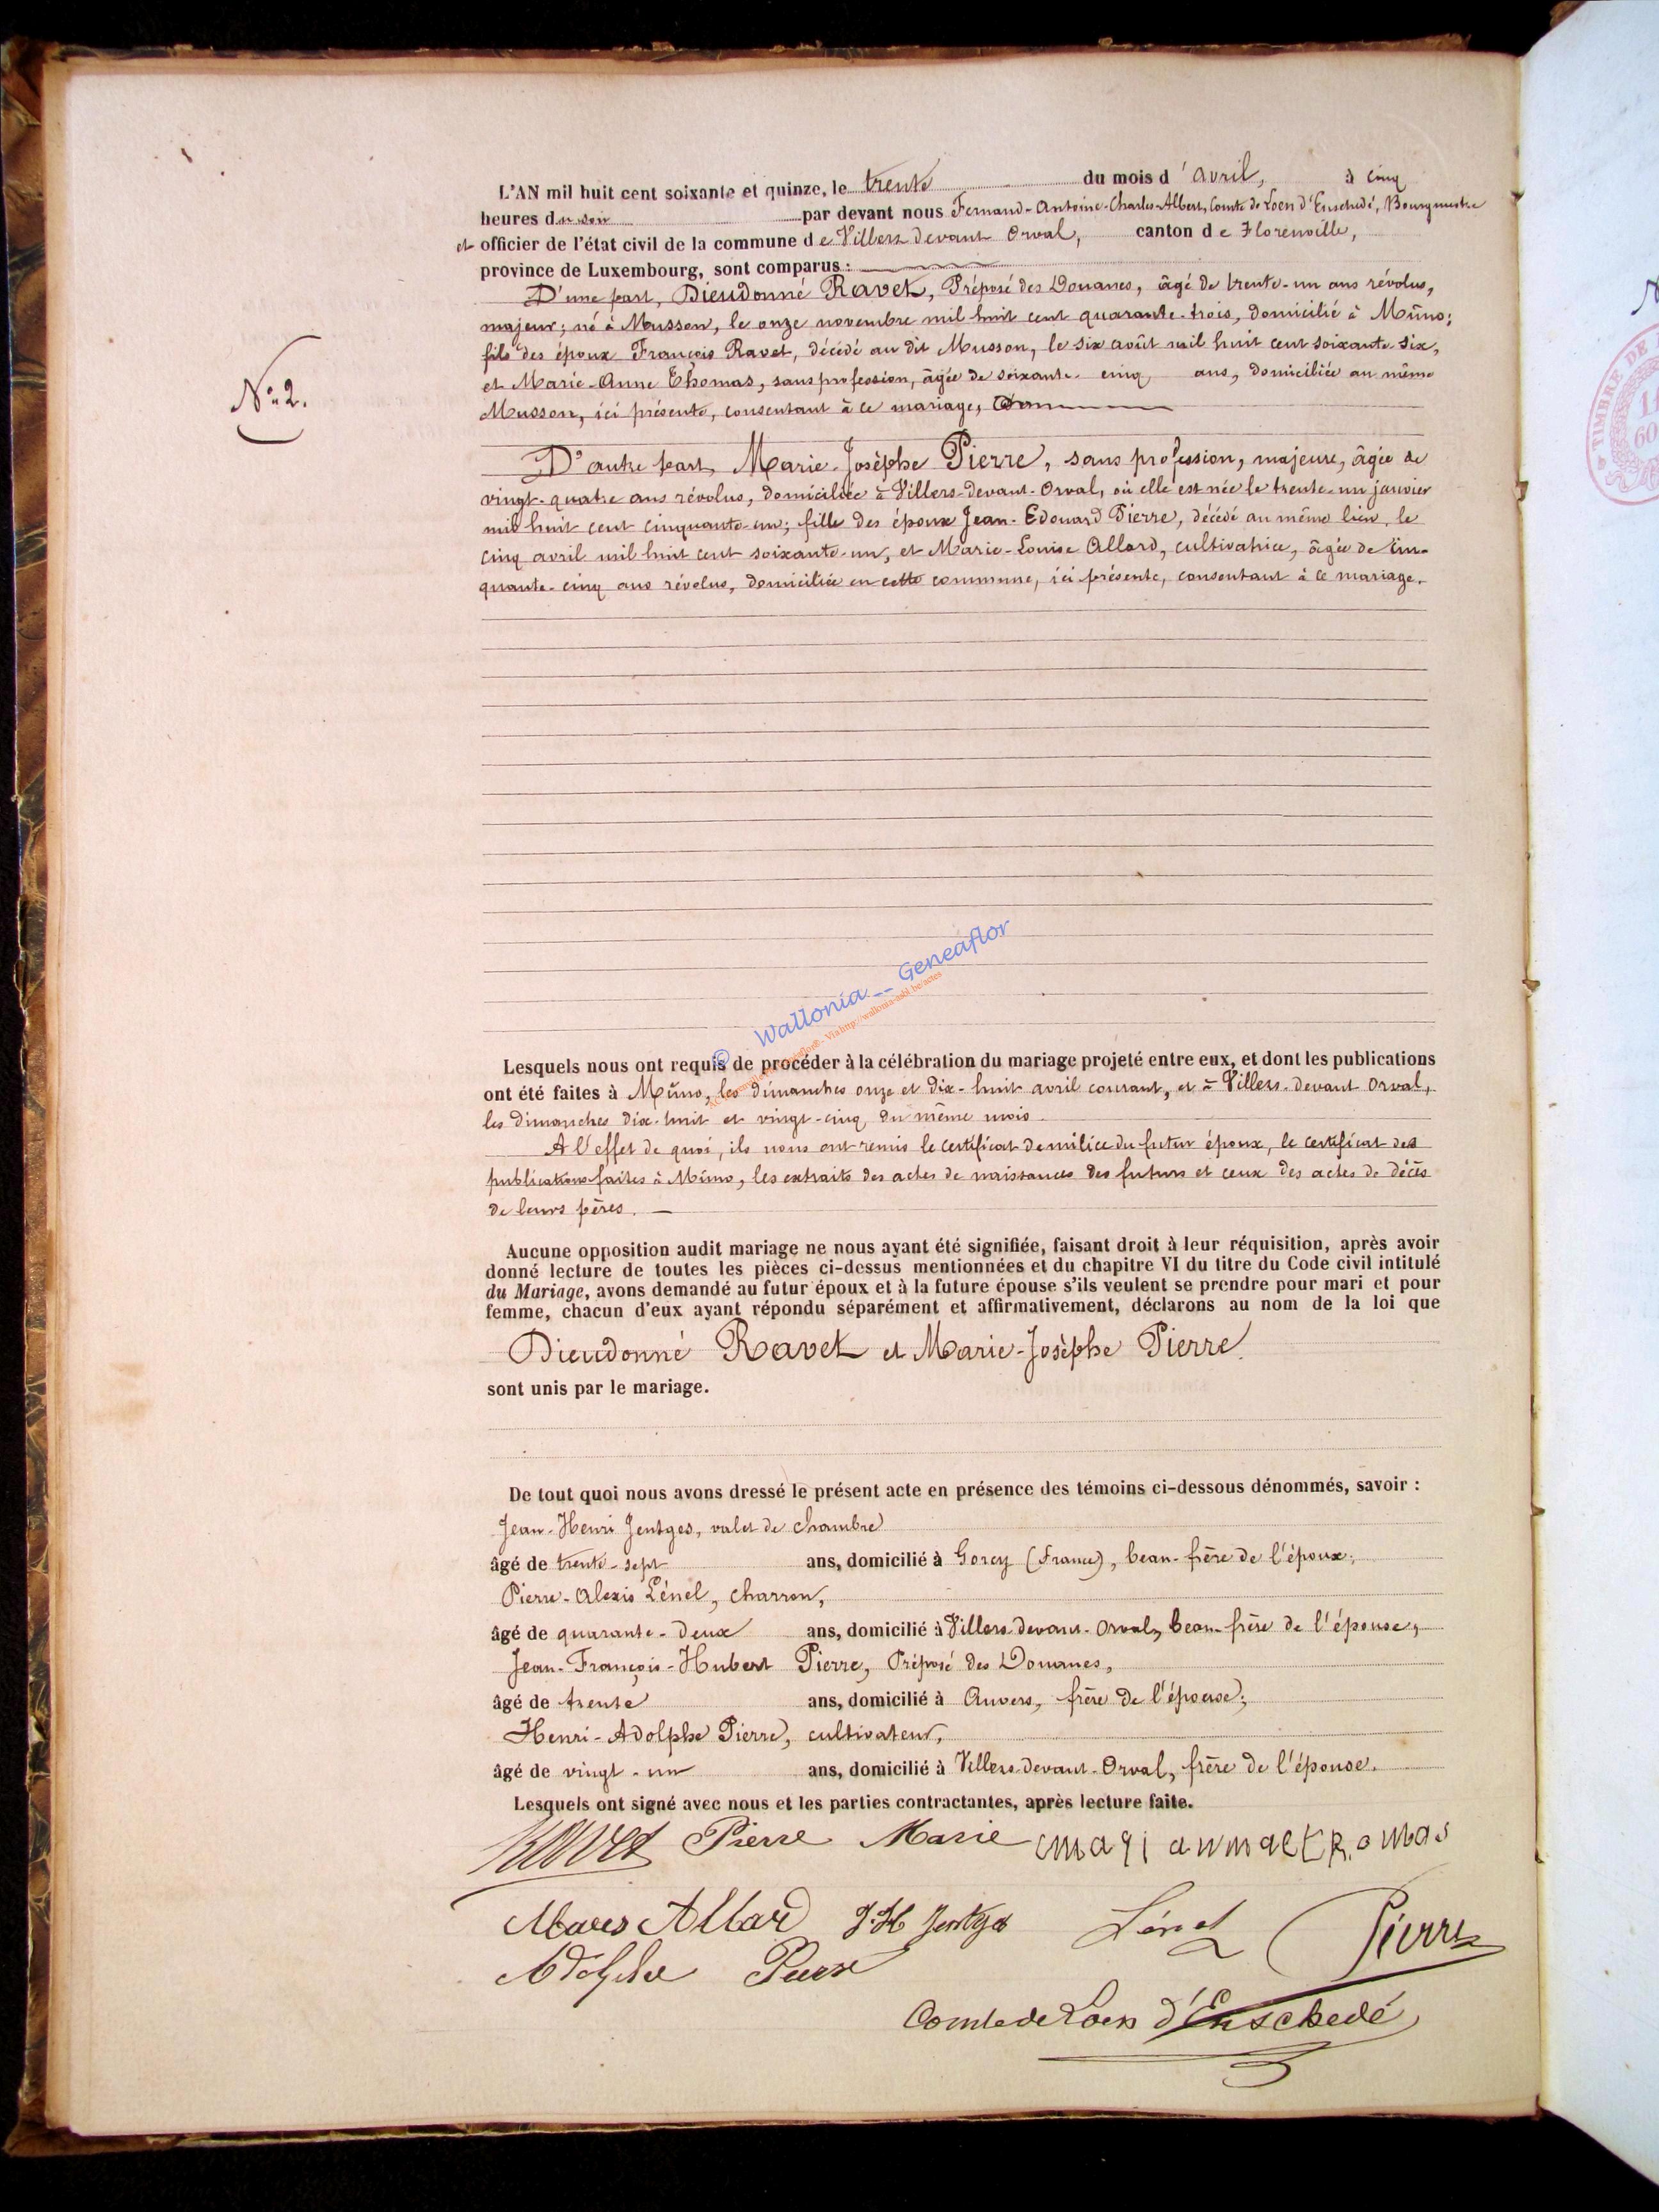 L'AN mil huit cent soixante et quinze, le trente du mois d'avril, à cinq
heures du soir par devant nous Fernand-Antoine-Charles-Albert, Comte de Loen d'Enschedé, Bourgmestre
et officier de l'état civil de la commune de Villers devant Orval, canton de Florenville,
province de Luxembourg, sont comparus :
D'une part, Dieudonné Ravet, Préposé des Douanes, âgé de trente-un ans révolus,
majeur; né à Musson, le onze novembre mil huit cent quarante-trois, domicilié à Mūno;
fils des époux François Ravet, décédé au dit Musson, le six août mil huit cent soixante-six,
et Marie-Anne Thomas, sans profession, âgée de soixante-cinq ans, domiciliée au même
Musson, ici présente, consentant à ce mariage,
N° 2.
D'autre part, Marie-Josèphe Pierre, sans profession, majeure, âgée de
vingt-quatre ans révolus, domiciliée à Villers-devant-Orval, où elle est née le trente-un janvier
mil huit cent cinquante-un; fille des époux Jean-Edouard Pierre, décédé au même lieu, le
cinq avril mil huit cent soixante-un, et Marie-Louise Allard, cultivatrice, âgée de cin-
quante-cinq ans révolus, domiciliée en cette commune, ici présente, consentant à ce mariage.
© Wallonia -- Geneaflor
Via http://wallonia-asbl.be/actes
Lesquels nous ont requis de procéder à la célébration du mariage projeté entre eux, et dont les publications
ont été faites à Mūno, les dimanches onze et dix-huit avril courant, et à Villers-devant Orval,
les dimanches dix-huit et vingt-cinq du même mois.
A l'effet de quoi, ils nous ont remis le certificat de milice du futur époux, le certificat des
publications faites à Mūno, les extraits des actes de naissances des futurs et ceux des actes de décès
de leurs pères.
Aucune opposition audit mariage ne nous ayant été signifiée, faisant droit à leur réquisition, après avoir
donné lecture de toutes les pièces ci-dessus mentionnées et du chapitre VI du titre du Code civil intitulé
du Mariage, avons demandé au futur époux et à la future épouse s'ils veulent se prendre pour mari et pour
femme, chacun d'eux ayant répondu séparément et affirmativement, déclarons au nom de la loi que
Dieudonné Ravet et Marie-Josèphe Pierre
sont unis par le mariage.
De tout quoi nous avons dressé le présent acte en présence des témoins ci-dessous dénommés, savoir :
Jean-Henri Jentges, valet de chambre
âgé de trente-sept ans, domicilié à Gorcy (France), beau-frère de l'époux;
Pierre-Alexis Lénel, charron,
âgé de quarante-deux ans, domicilié à Villers-devant-Orval, beau-frère de l'épouse;
Jean-François-Hubert Pierre, Préposé des Douanes,
âgé de trente ans, domicilié à Anvers, frère de l'épouse;
Henri-Adolphe Pierre, cultivateur,
âgé de vingt-un ans, domicilié à Villers-devant-Orval, frère de l'épouse.
Lesquels ont signé avec nous et les parties contractantes, après lecture faite.
Ravet Pierre Marie
Allard J H Jentges Lénel Pierre
Adolphe Pierre
Comte de Loen d'Enschedé
TIMBRE DE